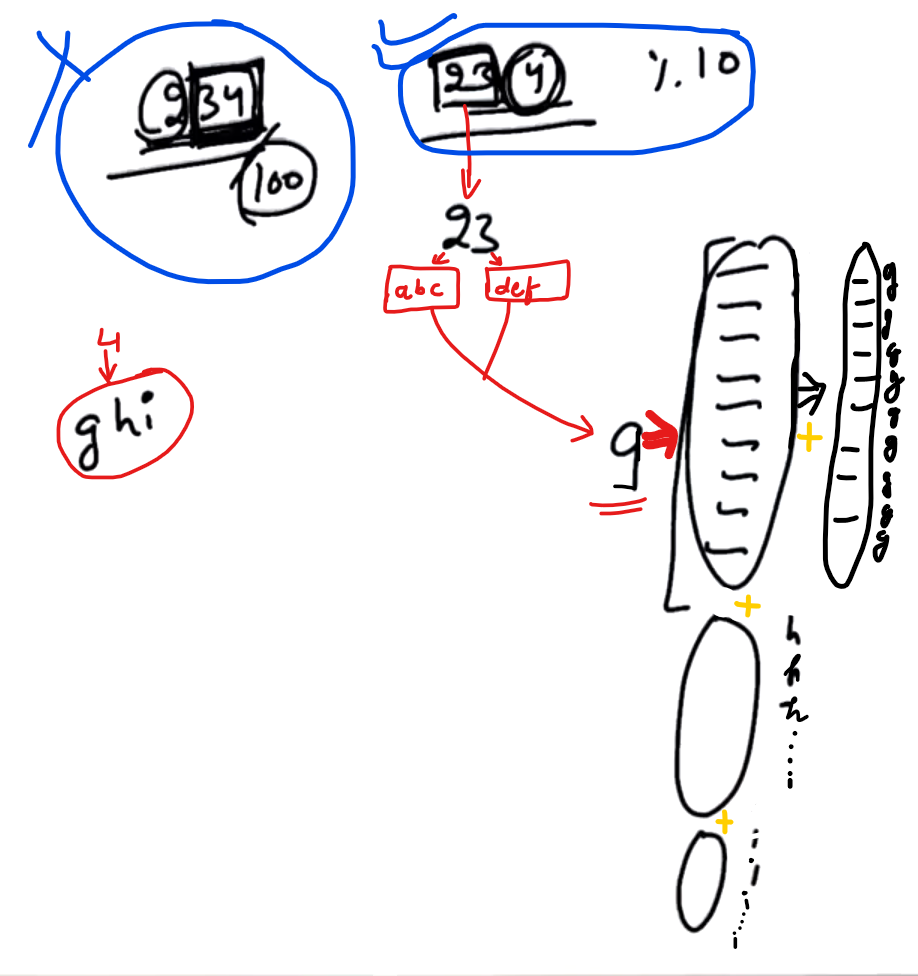 234
100
234 %10
23
abc def
4
ghi
9
g
g
g
g
g
g
g
g
g
+
+
h
h
h
i
+
i
i
i
i